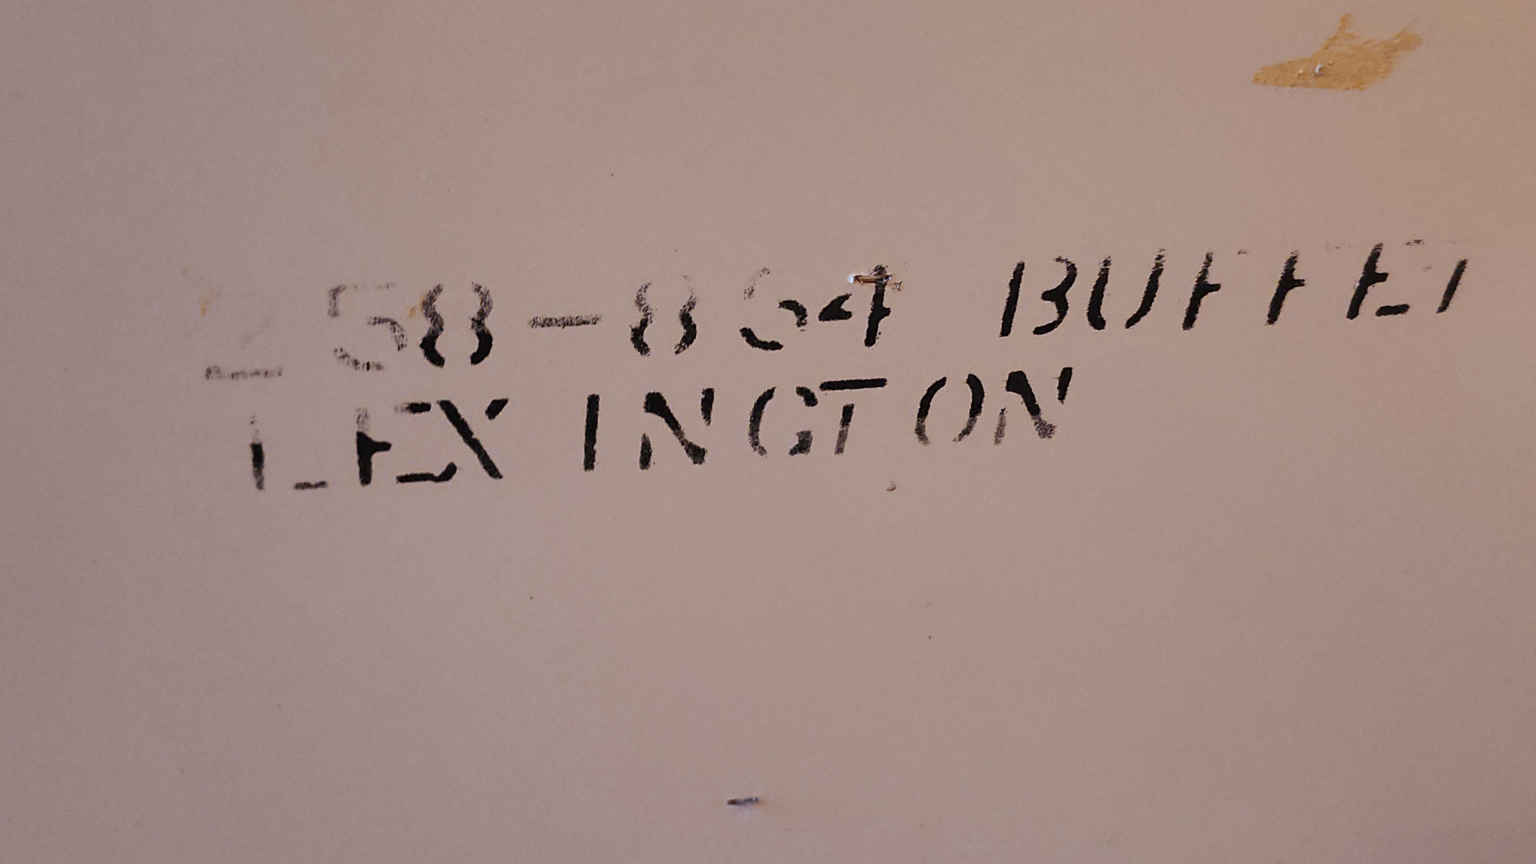 258-864 BUFFET
LEXINGTON